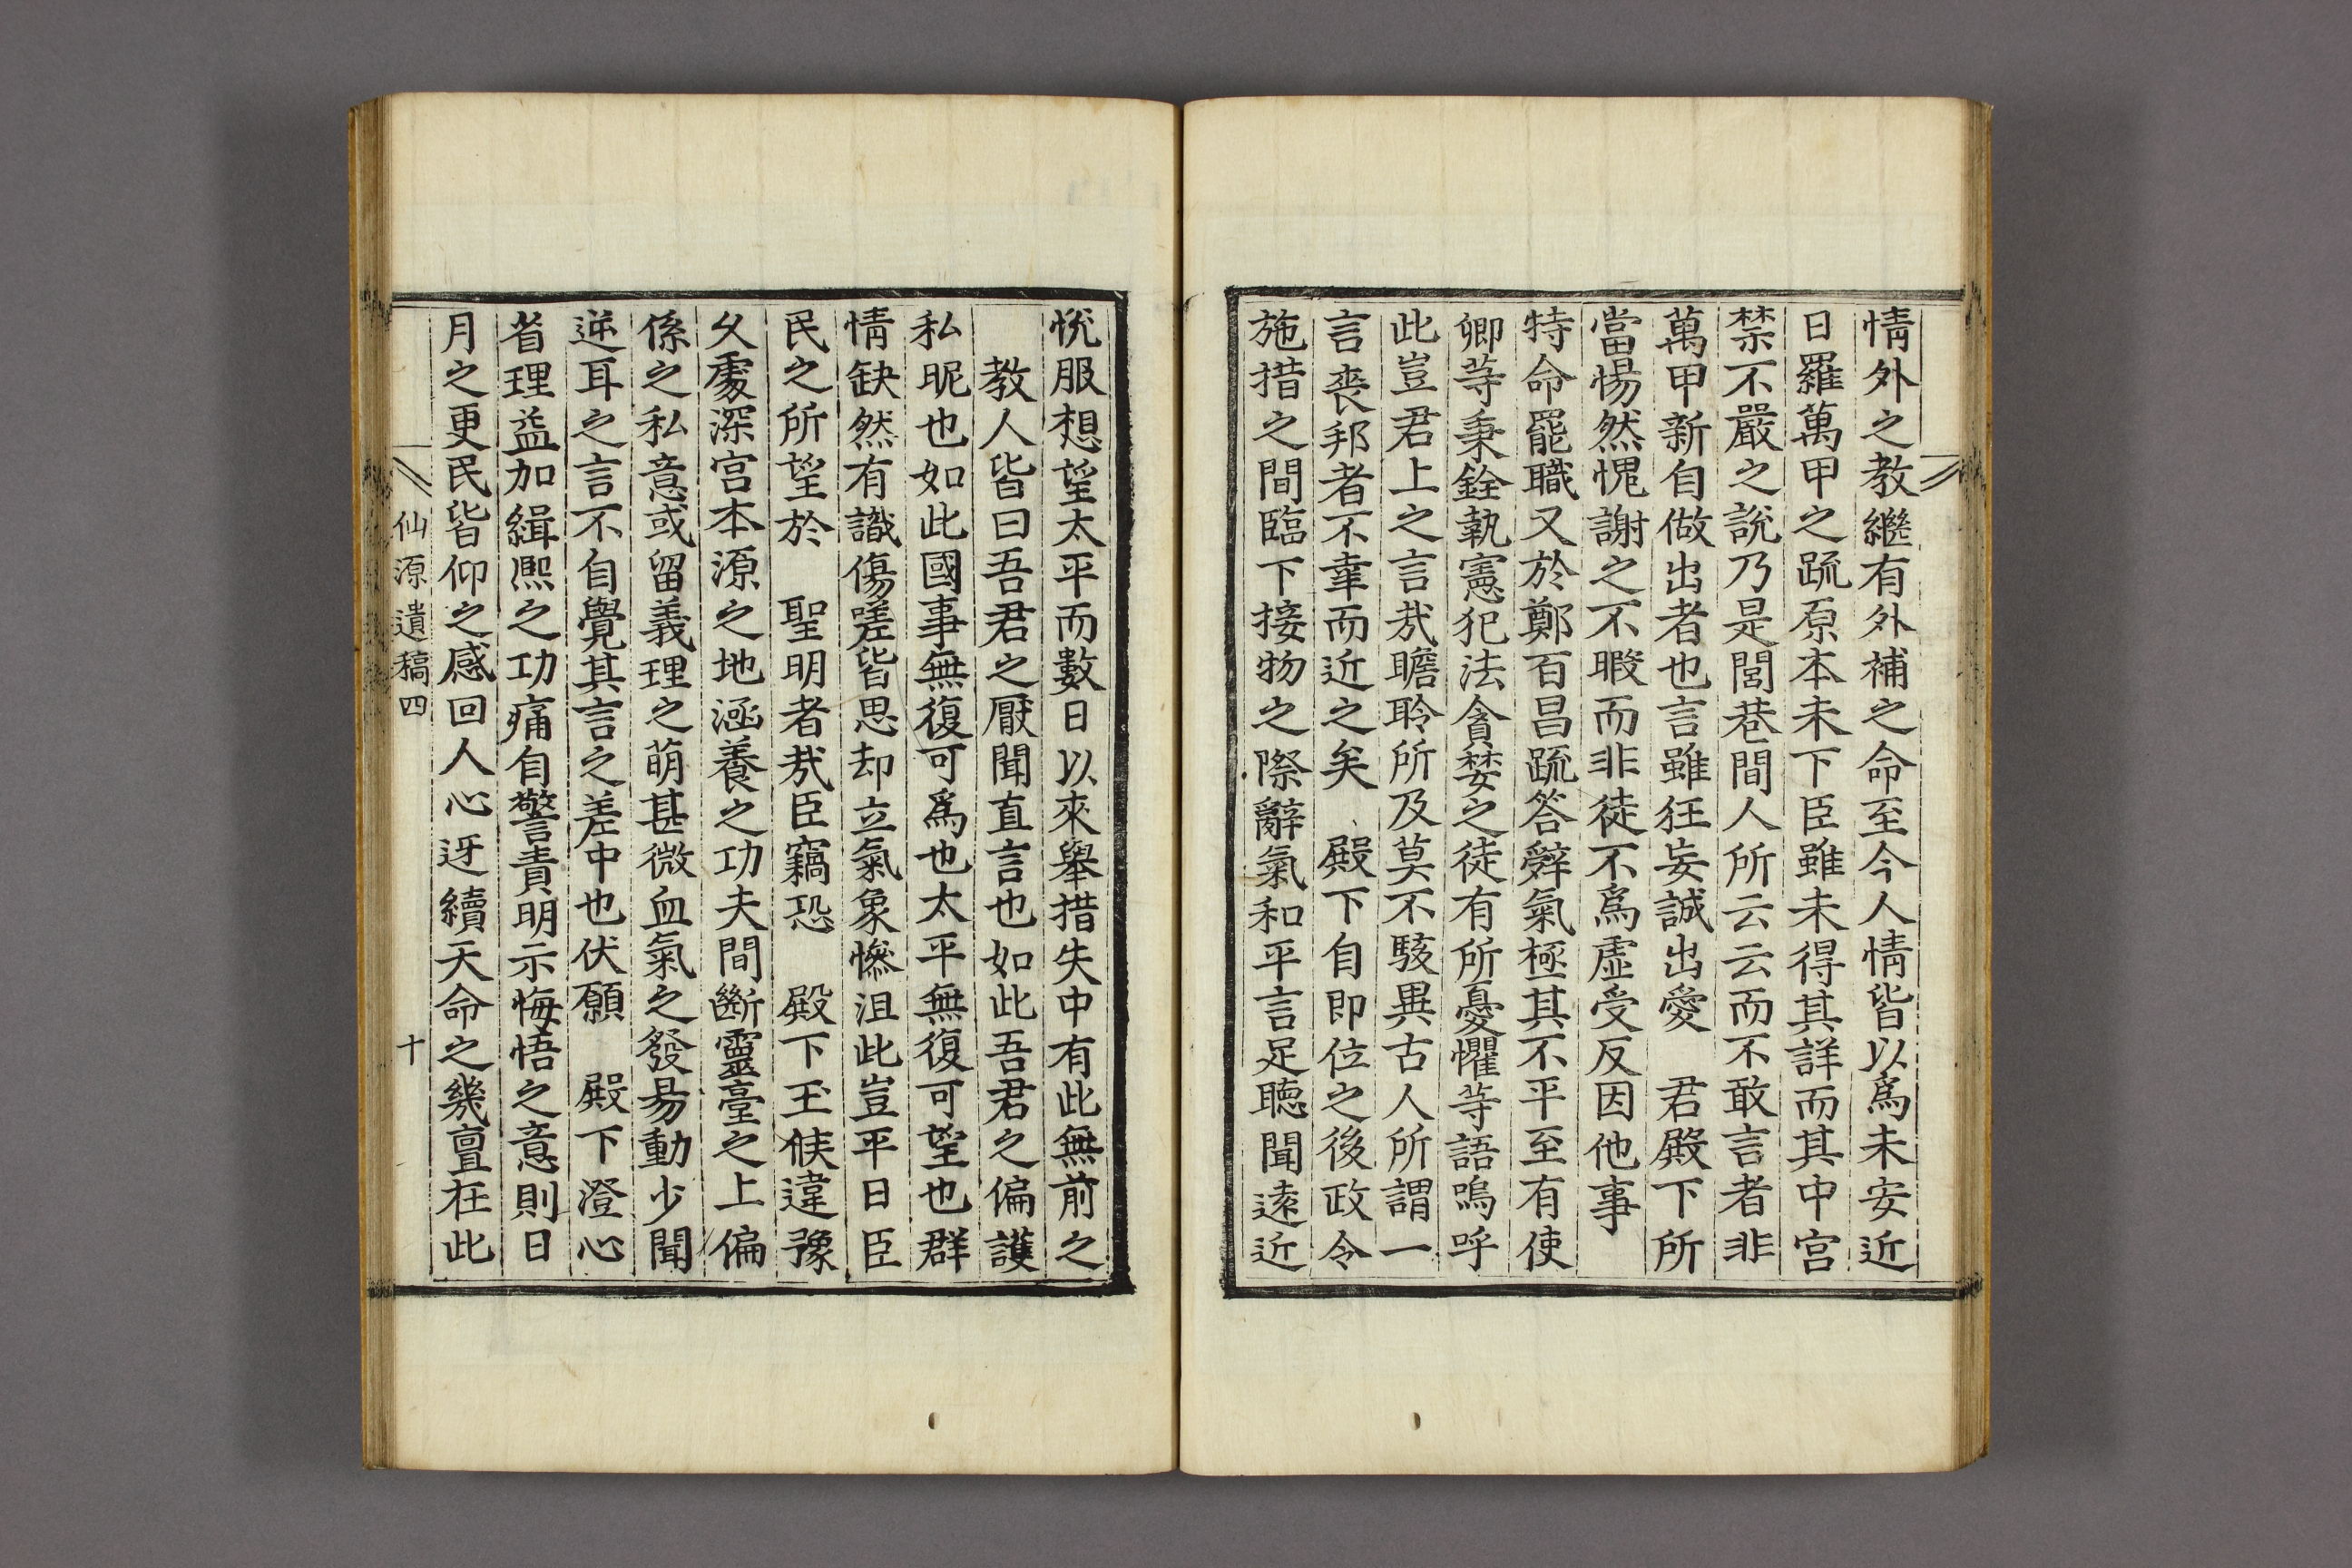 情外之教繼有外補之命至今人情皆以爲未安近
日羅萬甲之疏原本未下臣雖未得其詳而其中宮
禁不嚴之說乃是閭巷間人所云云而不敢言者非
萬甲新自做出者也言雖狂妄誠出愛　君殿下所
當惕然愧謝之不暇而非徒不爲虛受反因他事
特命罷職又於鄭百昌疏答辭氣極其不平至有使
卿等秉銓執憲犯法貪婪之徒有所憂懼等語嗚呼
此豈君上之言㢤瞻聆所及莫不駭異古人所謂一
言喪邦者不幸而近之矣　殿下自即位之後政令
施措之間臨下接物之際辭氣和平言足聽聞遠近
悅服想望太平而數日以來舉措失中有此無前之
教人皆曰吾君之厭聞直言也如此吾君之偏護
私昵也如此國事無復可爲也太平無復可望也群
情缺然有識傷嗟皆思却立氣象慘沮此豈平日臣
民之所望於　聖明者㢤臣竊恐　殿下玉候違豫
久處深宮本源之地涵養之功夫間斷靈臺之上偏
係之私意或留義理之萌甚微血氣之發易動少聞
逆耳之言不自覺其言之差中也伏願　殿下澄心
省理益加緝熙之功痛自警責明示悔悟之意則日
月之更民皆仰之感回人心迓續天命之幾亶在此
仙源遺稿四　十